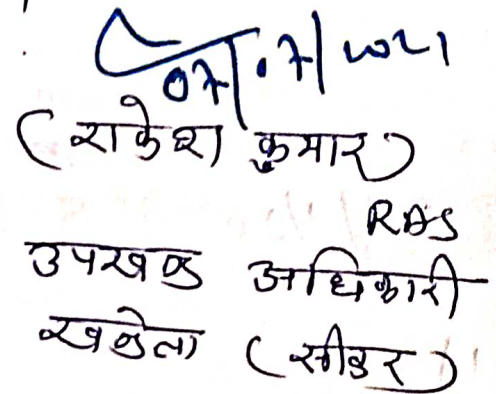 07.07.2021
(राकेश कुमार)
RAS
उपखण्ड अधिकारी
खण्डेला (सीकर)